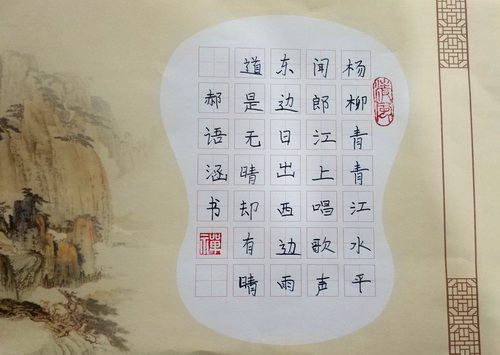 杨柳青青江水平
闻郎江上唱歌声
东边日出西边雨
道是无晴却有晴
郝语涵书